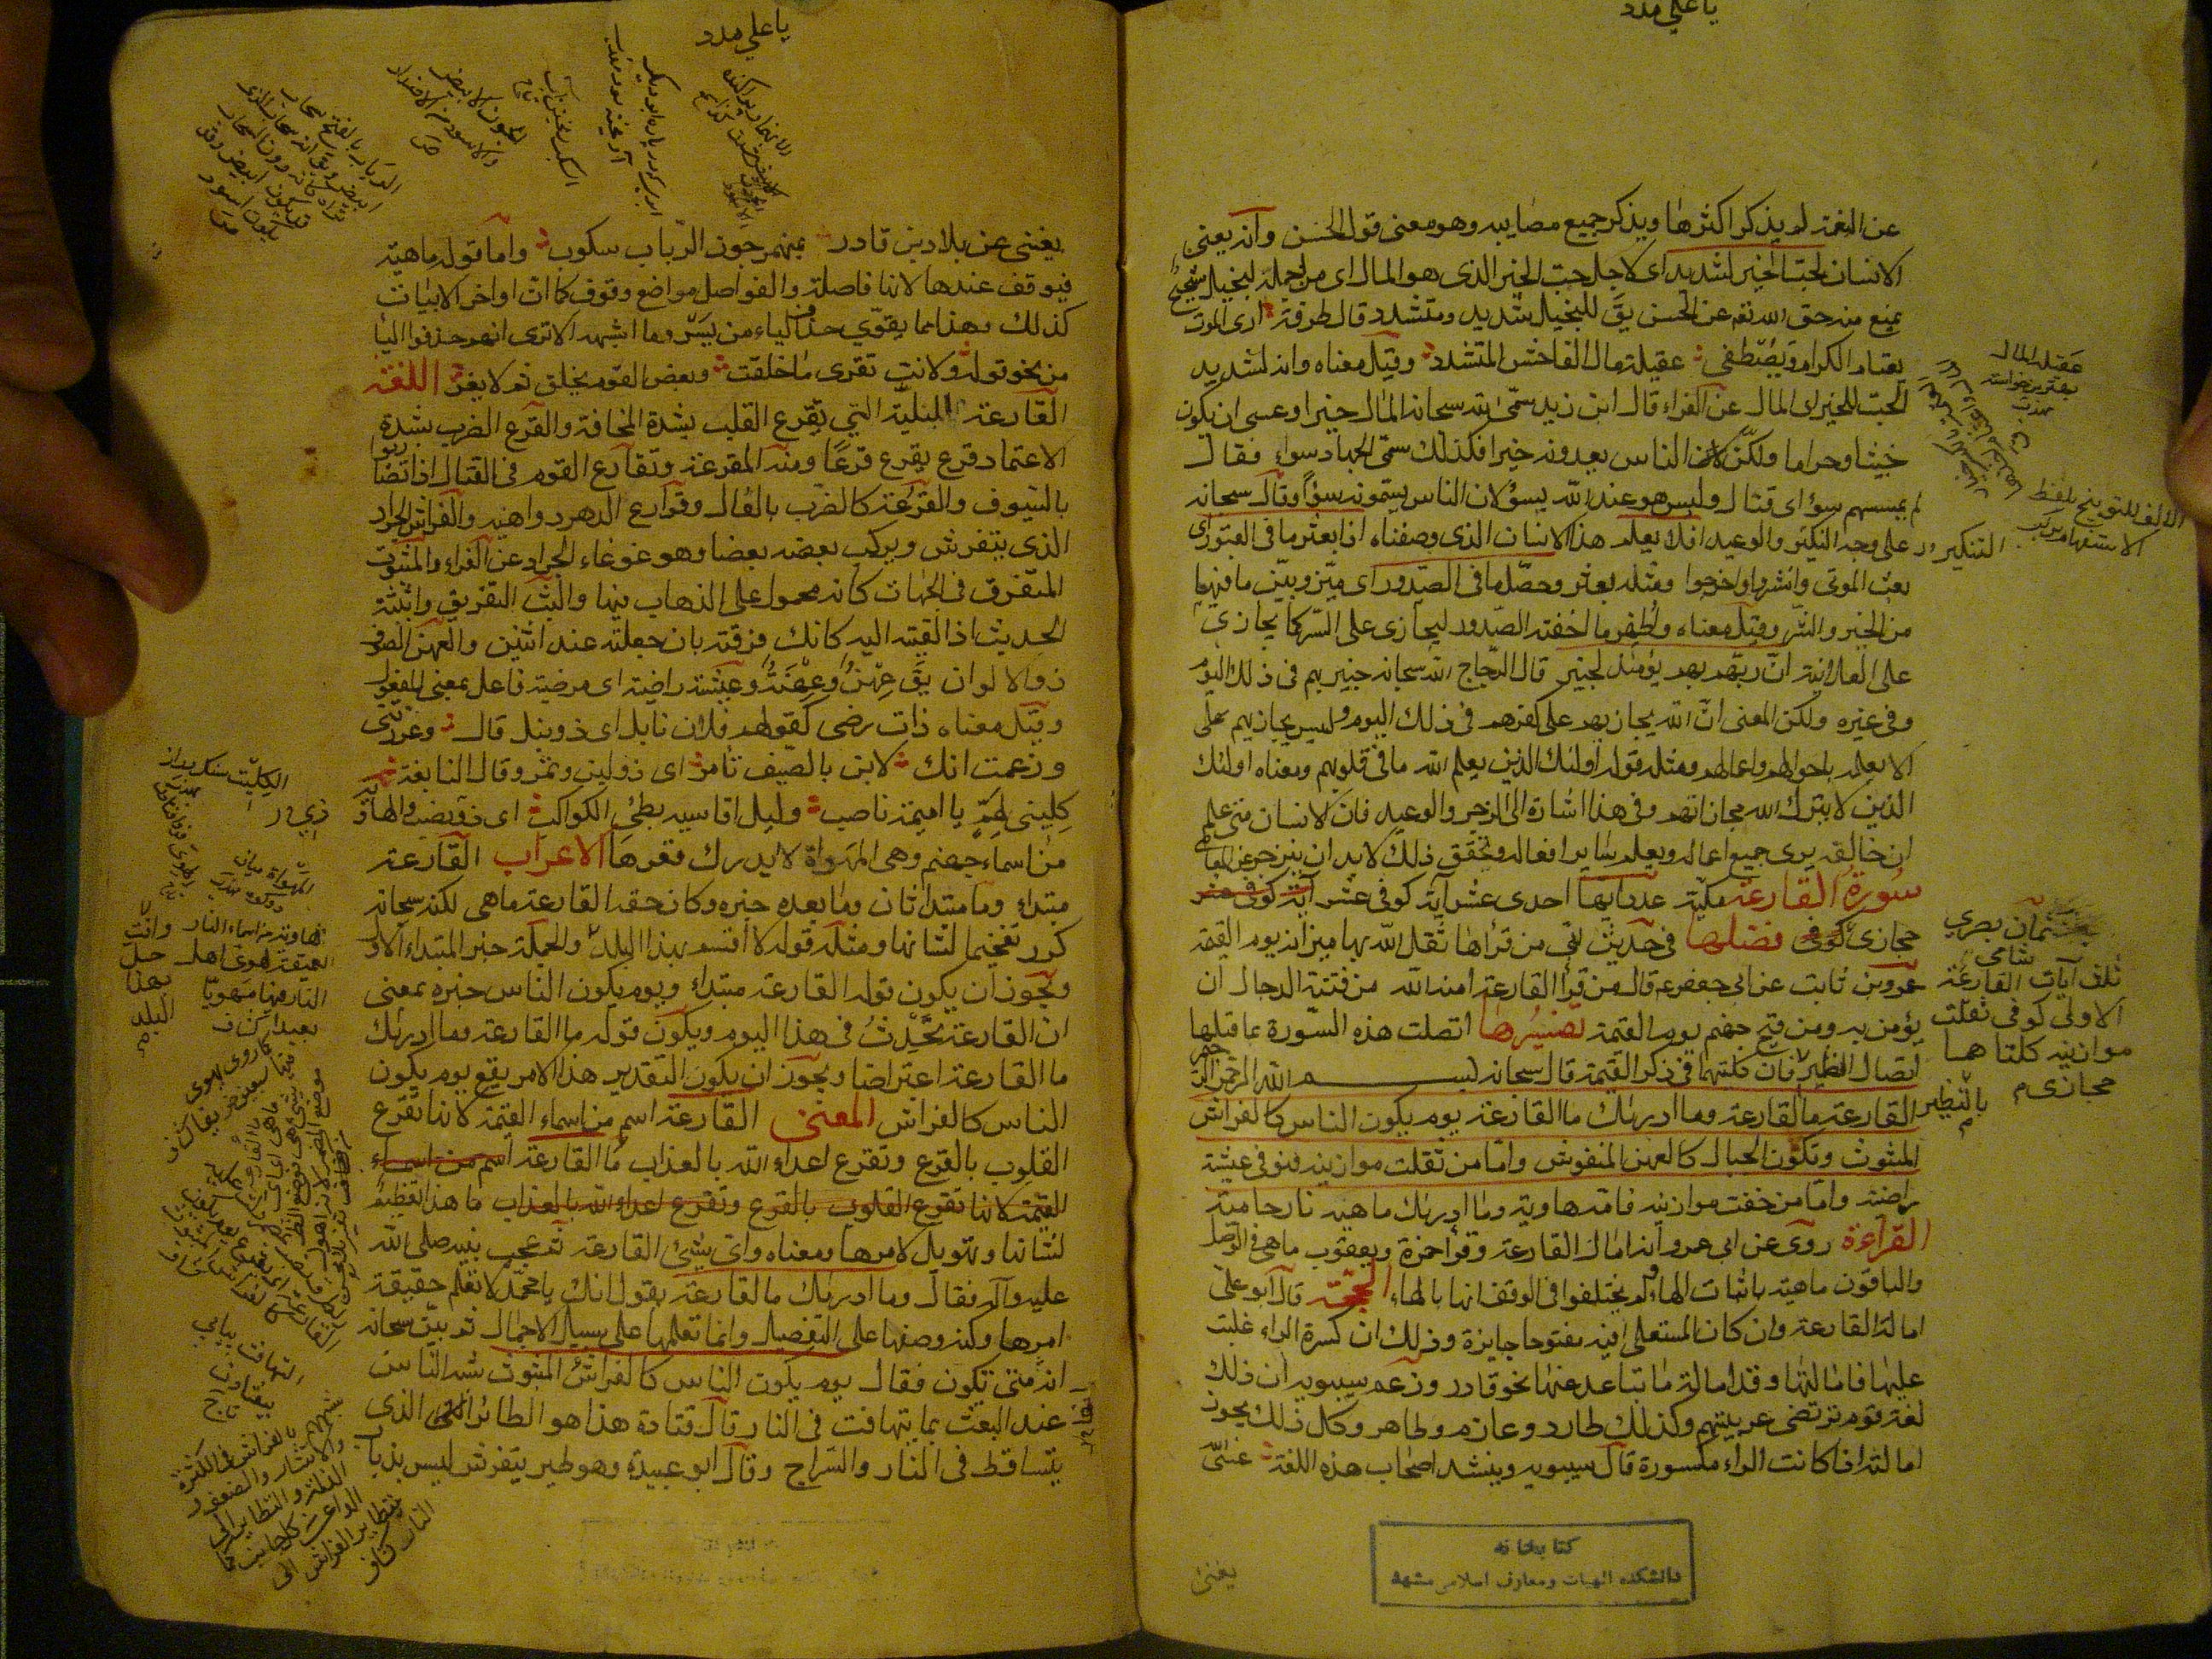 يا علي مدد
عن النعمة لم يذكر اكثرها ويذكر جميع مصايبه وهو معنى قول الحسن وانه يعني
الانسان لحب الخير لشديد اى لاجل حب الخير الذى هو المال اى من اجله لبخيل شحيح
يمنع منه حق الله تعم عن الحسن يق للبخيل شديد ومتشدد قال طرفة ارى الموت
يعتام الكرام ويصطفى عقيلة مال الفاحش المتشدد وقيل معناه وانه لشديد
الحب للخير اى المال عن الفراء قال ابن زيد سمى الله سبحانه المال خيرا وعسى ان يكون
خبيثا وحراما ولكن لان الناس يعدونه خيرا فكذلك سمى الجهاد سواء فقال
لم يمسسهم سوء اى قتال وليس هو عند الله بسوء لان الناس يسمونه سوءا وقال سبحانه
على وجه التنكير والوعيد افلا يعلم هذا الانسان الذى وصفناه اذا بعثر ما فى القبور اى
بعث الموتى وانشروا واخرجوا ومثله بعثر وحصل ما فى الصدور اى ميز وبين ما فيها
من الخير والشر وقيل معناه واظهر ما اخفته الصدور ليجازى على السر كما يجازى
على العلانية ان ربهم بهم يومئذ لخبير قال الزجاج الله سبحانه خبير بهم فى ذلك اليوم
وفى غيره ولكن المعنى ان الله يجازيهم على كفرهم فى ذلك اليوم وليس يجازيهم على
الا بعلمه باحوالهم واعمالهم ومثله قوله اولئك الذين يعلم الله ما فى قلوبهم ومعناه اولئك
الذين لا يترك الله مجازاتهم وفى هذا اشارة الى الزجر والوعيد فان الانسان متى علم
ان خالقه يرى جميع اعماله ويعلم سائر افعاله وتحقق ذلك لا بد ان ينزجر عن المعاصى
سورة القارعة مكية عدد ايها احدى عشر آية كوفى عشر آية
حجازى فضلها فى حديث ابى من قراها ثقل الله بها ميزانه يوم القيمة
عمرو بن ثابت عن ابى جعفر ع قال من قرأ القارعة امنه الله من فتنة الدجال ان
يؤمن به ومن قيح جهنم يوم القيمة تفسيرها اتصلت هذه السورة بما قبلها
اتصال النظير فان كلتيهما فى ذكر القيمة قال سبحانه بسم الله الرحمن الرحيم
القارعة ما القارعة وما ادريك ما القارعة يوم يكون الناس كالفراش
المبثوث وتكون الجبال كالعهن المنفوش واما من ثقلت موازينه فهو فى عيشة
راضية واما من خفت موازينه فامه هاوية وما ادريك ماهيه نار حامية
القراءة روى عن ابى عمرو انه امال القارعة وقرأ حمزة ويعقوب ما هى فى الوصل
والباقون ماهيه باثبات الهاء ولم يختلفوا فى الوقف انها بالهاء الحجة قال ابو على
امالة القارعة وان كان المستعلى فيه مفتوحا جايزة وذلك ان كسرة الراء غلبت
عليها فامالتها وقد امالت ما تباعد عنها نحو قادر وزعم سيبويه ان ذلك
لغة قوم ترتضى عربيتهم وكذلك طارد وعارم وطاهر وكل ذلك يجوز
امالته اذا كانت الراء مكسورة قال سيبويه وينشد اصحاب هذه اللغة عسى
يغنى
كتابخانه
دانشكده الهيات ومعارف اسلامى مشهد
عقيلة المال
بهترين خواسته
الالف للتوبيخ بلفظ
الاستفهام
التنكير
ثمان بصرى
شامى
ثلث آيات القارعة
الاولى كوفى ثقلت
موازينه كلتا هما
حجازى م
بالنظير
يا علي مدد
يغنى عن بلاد بن قادر بمنهمر جون الرباب سكوب واما قوله ماهيه
فيوقف عندها لانها فاصلة والفواصل مواضع وقوف كما ان اواخر الابيات
كذلك وهذا مما يقوى حذف الياء من يسر وما اشبهه الا ترى انهم حذفوا الياء
من نحو قوله ولانت تفرى ما خلقت وبعض القوم يخلق ثم لا يفر اللغة
القارعة البلية التي تقرع القلب بشدة المخافة والقرع الضرب بشدة
الاعتماد قرع يقرع قرعا ومنه المقرعة وتقارع القوم فى القتال اذا تضاربوا
بالسيوف والقرعة كالضرب بالفال وقوارع الدهر دواهيه والفراش الجراد
الذى يتفرش ويركب بعضه بعضا وهو غوغاء الجراد عن الفراء والمبثوث
المتفرق فى الجهات كانه محمول على الذهاب فيها والبث التفريق وابثثته
الحديث اذا القيته اليه كانك فرقته بان جعلته عند اثنين والعهن الصوف
ذو الالوان يق عهن وعهنة وعيشة راضية اى مرضية فاعل بمعنى المفعول
وقيل معناه ذات رضى كقولهم فلان نابل اى ذو نبل قال وغررتنى
وزعمت انك لابن بالصيف تامر اى ذو لبن وتمر وقال النابغة
كلينى لهم يا اميمة ناصب وليل اقاسيه بطئ الكواكب اى ذو نصب والهاوية
من اسماء جهنم وهى المهواة لا يدرك قعرها الاعراب القارعة
مبتداء وما مبتدا ثان وما بعده خبره وكان حقه القارعة ماهى لكنه سبحانه
كرر تفخيما لشانها ومثله قوله لا اقسم بهذا البلد والجملة خبر المبتداء الاول
ويجوز ان يكون قوله القارعة مبتداء ويوم يكون الناس خبره بمعنى
ان القارعة تحدث فى هذا اليوم ويكون قوله ما القارعة وما ادريك
ما القارعة اعتراضا ويجوز ان يكون التقدير هذا الامر يقع يوم يكون
الناس كالفراش المعنى القارعة اسم من اسماء القيمة لانها تقرع
القلوب بالفزع وتقرع اعداء الله بالعذاب ما القارعة اسم من اسماء
القيمة لانها تقرع القلوب بالفزع وتقرع اعداء الله بالعذاب ما هذا تعظيم
لشانها وتهويل لامرها ومعناه واى شئ القارعة ثم عجب نبيه صلى الله
عليه وآله فقال وما ادريك ما القارعة يقول انك يا محمد لا تعلم حقيقة
امرها وكنه وصفها على التفصيل وانما تعلمها على سبيل الاجمال ثم بين سبحانه
انه متى تكون فقال يوم يكون الناس كالفراش المبثوث شبه الناس
عند البعث بما يتهافت فى النار قال قتادة هذا هو الطائر الذى
يتساقط فى النار والسراج وقال ابو عبيدة وهو طير يتفرش ليس بذباب
الجون الابيض
والاسود من الاضداد
الرباب بالفتح سحاب
ابيض
المهواة ميان
هاوية من اسماء النار
النار فيها مهوى
بعيدا كشاف
وانت
حل
بهذا
البلد
التهافت بيابى
بيفتادن
تاج
شبههم بالفراش فى الكثرة
والانتشار والضعف
والذلة والتطاير الى
الداعى من كل جانب كما
يتطاير الفراش الى
النار كشاف